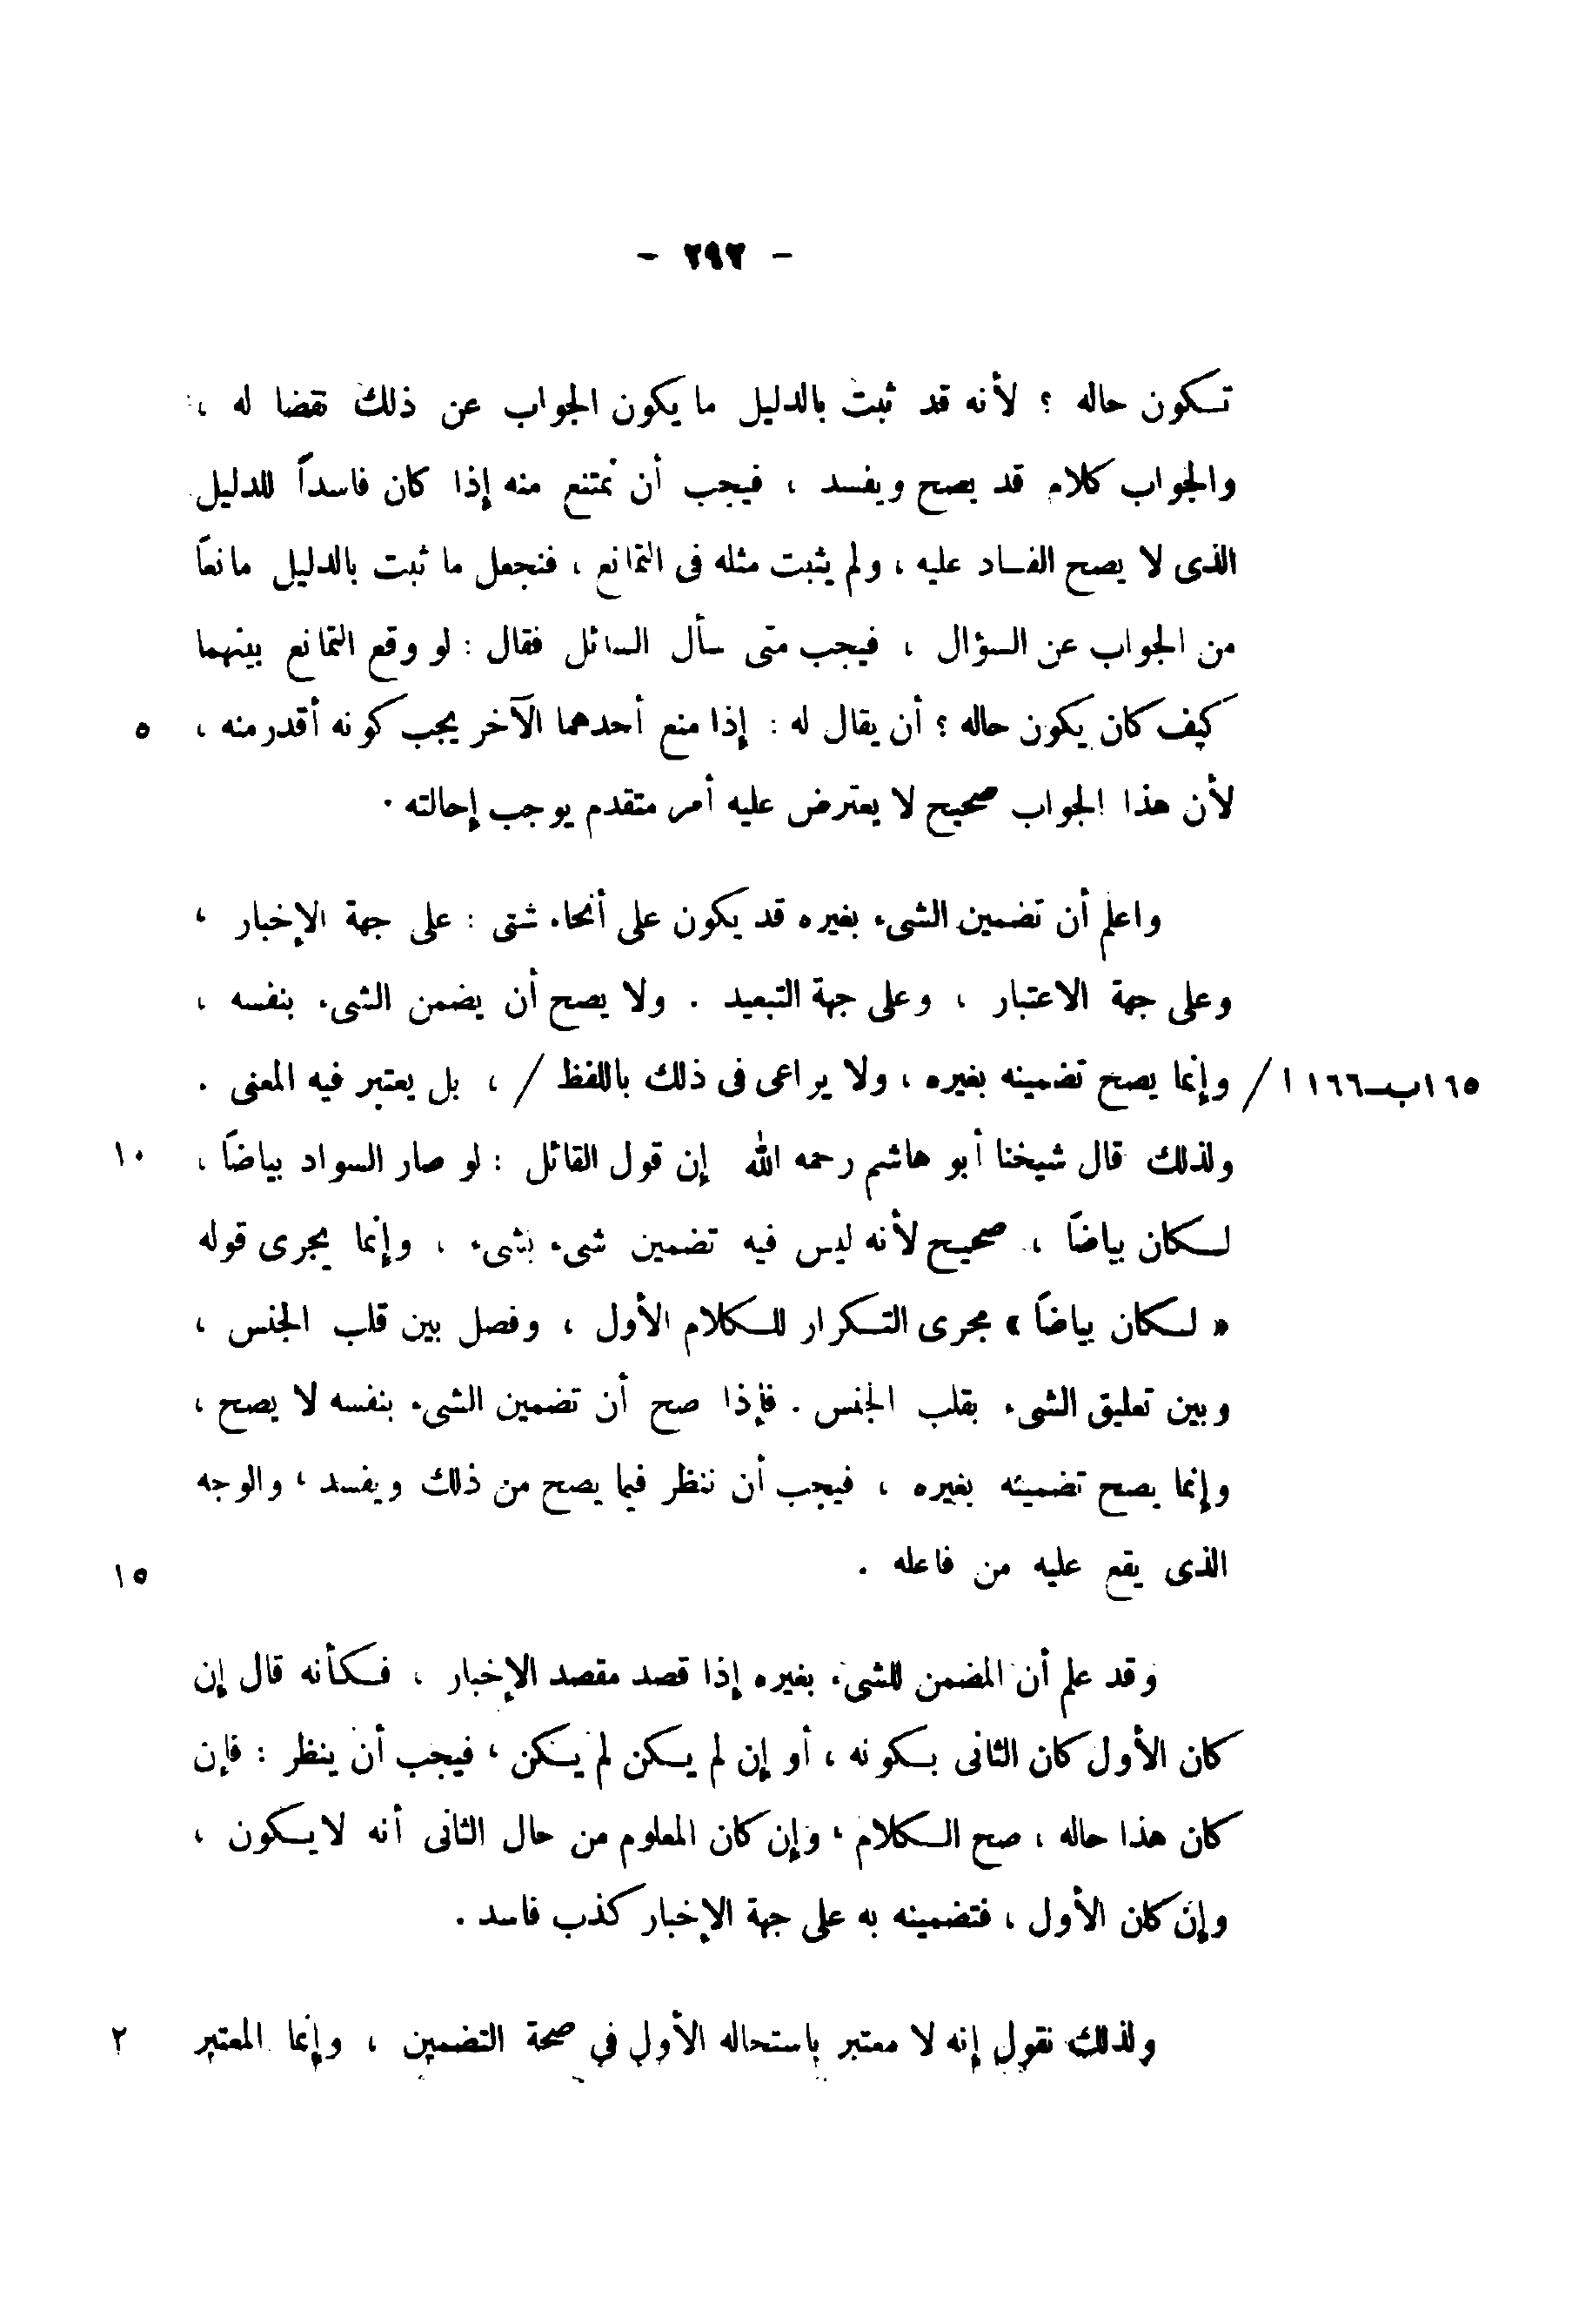 - ٢٩٢ -
تكون حاله ؟ لأنه قد ثبت بالدليل ما يكون الجواب عن ذلك نقضا له ،
والجواب كلام قد يصح ويفسد ، فيجب أن نمتنع منه إذا كان فاسداً للدليل
الذى لا يصح الفساد عليه ، ولم يثبت مثله فى التمانع ، فنجعل ما ثبت بالدليل مانعاً
من الجواب عن السؤال ، فيجب متى سأل السائل فقال : لو وقع التمانع بينهما
كيف كان يكون حاله ؟ أن يقال له : إذا منع أحدهما الآخر يجب كونه أقدر منه ، ٥
لأن هذا الجواب صحيح لا يعترض عليه أمر متقدم يوجب إحالته .
واعلم أن تضمين الشىء بغيره قد يكون على أنحاء شتى : على جهة الإخبار ،
وعلى جهة الاعتبار ، وعلى جهة التبعيد . ولا يصح أن يضمن الشىء بنفسه ،
١٦٥ب-١٦٦ ا / وإنما يصح تضمينه بغيره ، ولا يراعى فى ذلك باللفظ / ، بل يعتبر فيه المعنى .
ولذلك قال شيخنا أبو هاشم رحمه الله إن قول القائل : لو صار السواد بياضاً ، ١٠
لكان بياضاً ، صحيح لأنه ليس فيه تضمين شىء بشىء ، وإنما يجرى قوله
« لكان بياضاً » مجرى التكرار للكلام الأول ، وفصل بين قلب الجنس ،
وبين تعليق الشىء بقلب الجنس . فإذا صح أن تضمين الشىء بنفسه لا يصح ،
وإنما يصح تضمينه بغيره ، فيجب أن ننظر فيما يصح من ذلك ويفسد ، والوجه
الذى يقع عليه من فاعله . ١٥
وقد علم أن المضمن للشىء بغيره إذا قصد مقصد الإخبار ، فكأنه قال إن
كان الأول كان الثانى بكونه ، أو إن لم يكن لم يكن ، فيجب أن ينظر : فإن
كان هذا حاله ، صح الكلام ، وإن كان المعلوم من حال الثانى أنه لا يكون ،
وإن كان الأول ، فتضمينه به على جهة الإخبار كذب فاسد .
ولذلك نقول إنه لا معتبر باستحاله الأول في صحة التضمين ، وإنما المعتبر ٢